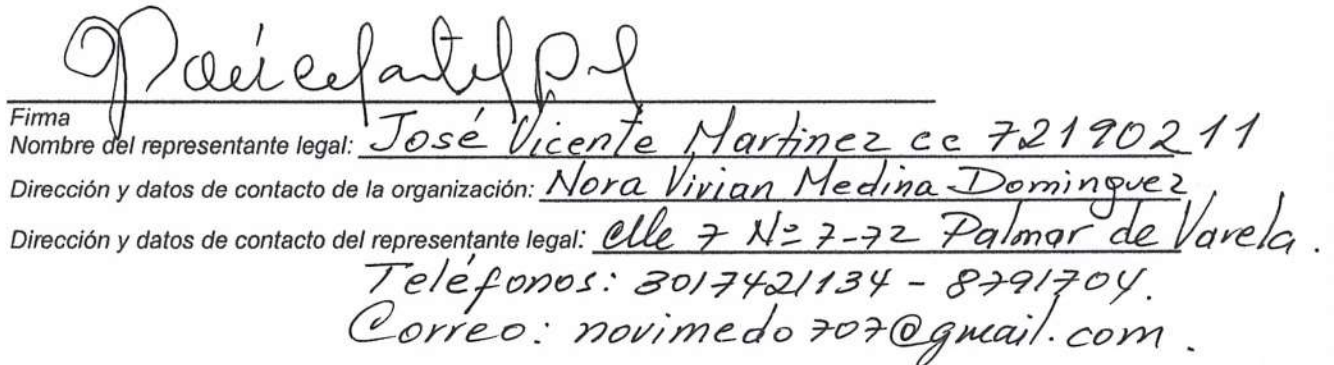 Firma
Nombre del representante legal: José Vicente Martinez cc 72190211
Dirección y datos de contacto de la organización: Nora Vivian Medina Dominguez
Dirección y datos de contacto del representante legal: Clle 7 Nº 7-72 Palmar de Varela.
Teléfonos: 3017421134 - 8791704.
Correo: novimedo707@gmail.com.